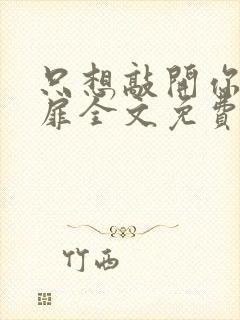 只想敲開你
扉全文免費
竹西